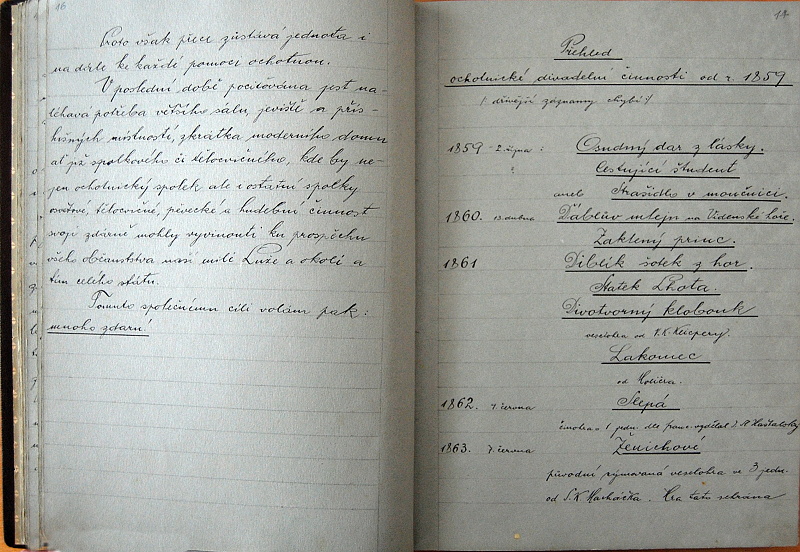 16
Proto však přece zůstává jednota i
na dále ke každé pomoci ochotnou.
V poslední době pociťována jest na-
léhavá potřeba většího sálu, jeviště a přís-
lušných místností, zkrátka moderního domu
ať již spolkového či tělocvičného, kde by ne-
jen ochotnický spolek ale i ostatní spolky
osvětové, tělocvičné, pěvecké a hudební činnost
svoji zdárně mohly vyvinouti ku prospěchu
všeho občanstva naší milé Luže a okolí a
tím celého státu.
Tomuto společnému cíli volám pak:
mnoho zdaru!
Přehled
ochotnické divadelní činnosti od r. 1859
/: dřívější záznamy chybí :/
1859 - 2. října : Osudný dar z lásky.
" Cestující student
aneb Strašidlo v
1860. 13 dubna Ďáblův mlejn na Vídenské hoře.
Zakletý princ.
1861 Diblík šotek z hor.
Statek Lhota.
Divotvorný klobouk
veselohra od V. K. Klicpery.
Lakomec
od
1862. 7. června Slepá
činohra v 1 jedn. dle franc. vzdělal
1863. 7. června Ženichové
původní rýmovaná veselohra ve 3 jedn.
od S. K. Macháčka. Hra tato sehrána